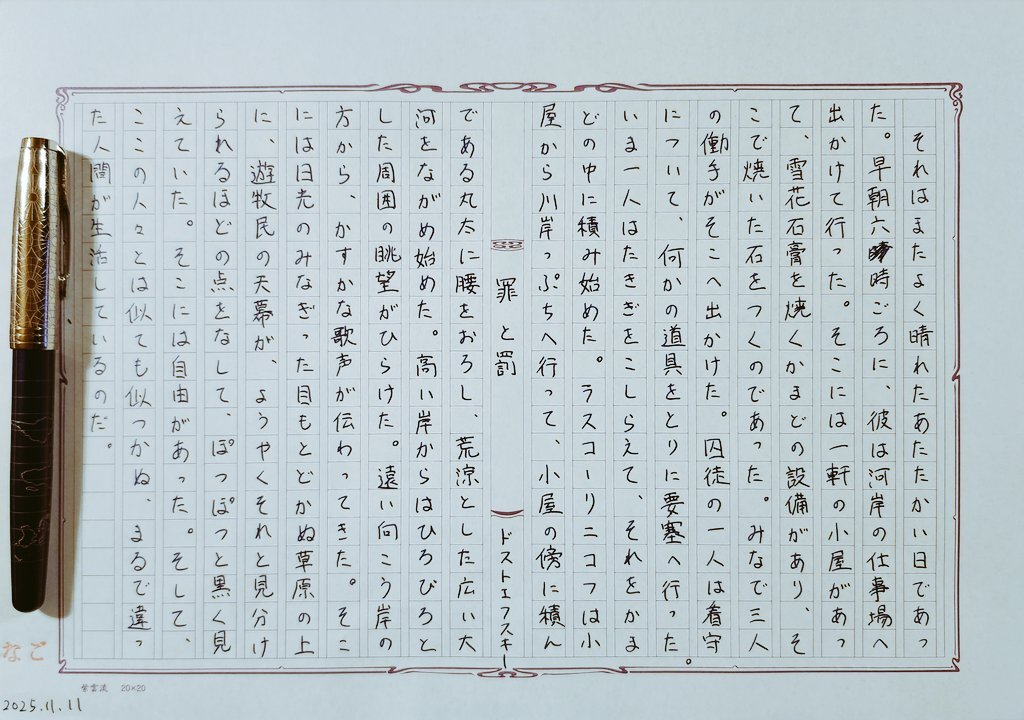 それはまたよく晴れたあたたかい日であっ
た。早朝六時ごろに、彼は河岸の仕事場へ
出かけて行った。そこには一軒の小屋があっ
て、雪花石膏を焼くかまどの設備があり、そ
こで焼いた石をつくのであった。みなで三人
の働手がそこへ出かけた。囚徒の一人は看守
について、何かの道具をとりに要塞へ行った。
いま一人はたきぎをこしらえて、それをかま
どの中に積み始めた。ラスコーリニコフは小
屋から川岸っぷちへ行って、小屋の傍に積ん
罪と罰
ドストエフスキー
である丸太に腰をおろし、荒涼とした広い大
河をながめ始めた。高い岸からはひろびろと
した周囲の眺望がひらけた。遠い向こう岸の
方から、かすかな歌声が伝わってきた。そこ
には日光のみなぎった目もとどかぬ草原の上
に、遊牧民の天幕が、ようやくそれと見分け
られるほどの点をなして、ぽっぽつと黒く見
えていた。そこには自由があった。そして、
ここの人々とは似ても似つかぬ、まるで違っ
た人間が生活しているのだ。
なご
紫雲流 20×20
2025.11.11